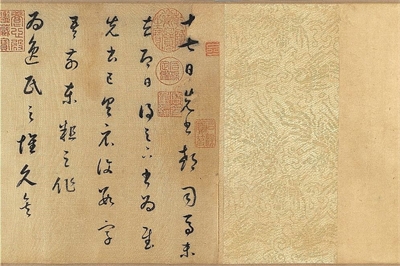 十七日先書郗司馬未
去即日得足下書為慰
先書以具示復數字
吾前東粗足作
為逸民之懷久矣